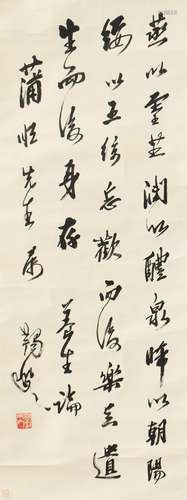 蒸以靈芝潤以醴泉晞以朝陽
綏以五絃忘歡而後樂足遺
生而後身存 養生論
先生